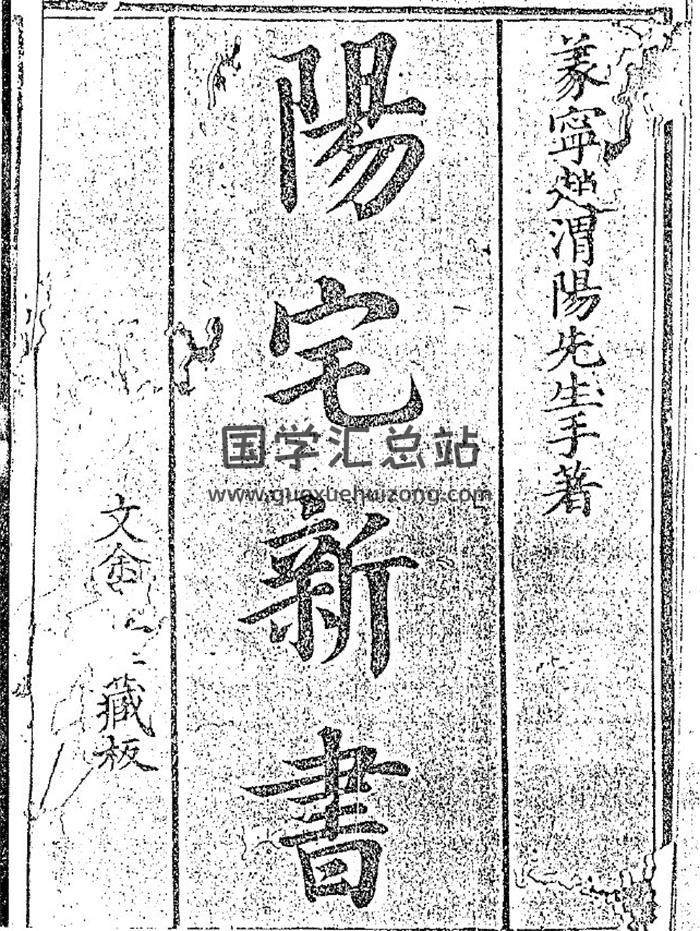 篆寧趙渭陽先生手著
陽宅新書
文金 藏板
国学汇总站
www.guoxuehuizong.com